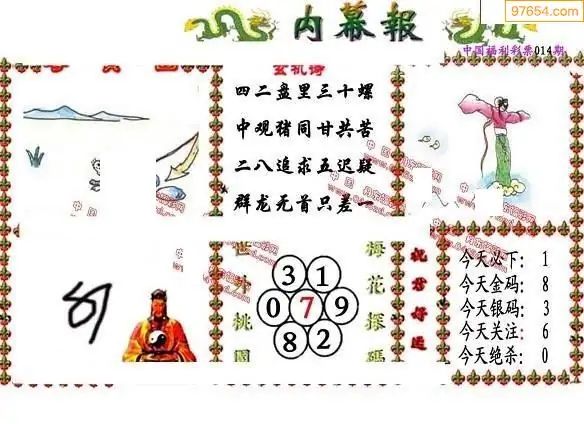 97654.com
内幕報
中国福利彩票014期
玄机诗
四二盘里三十螺
中观猪同甘共苦
二八追求五迟疑
群龙无首只差一
世外桃園
3 1
0 7 9
8 2
梅花探碼
祝君好运
今天必下：1
今天金码：8
今天银码：3
今天关注：6
今天绝杀：0